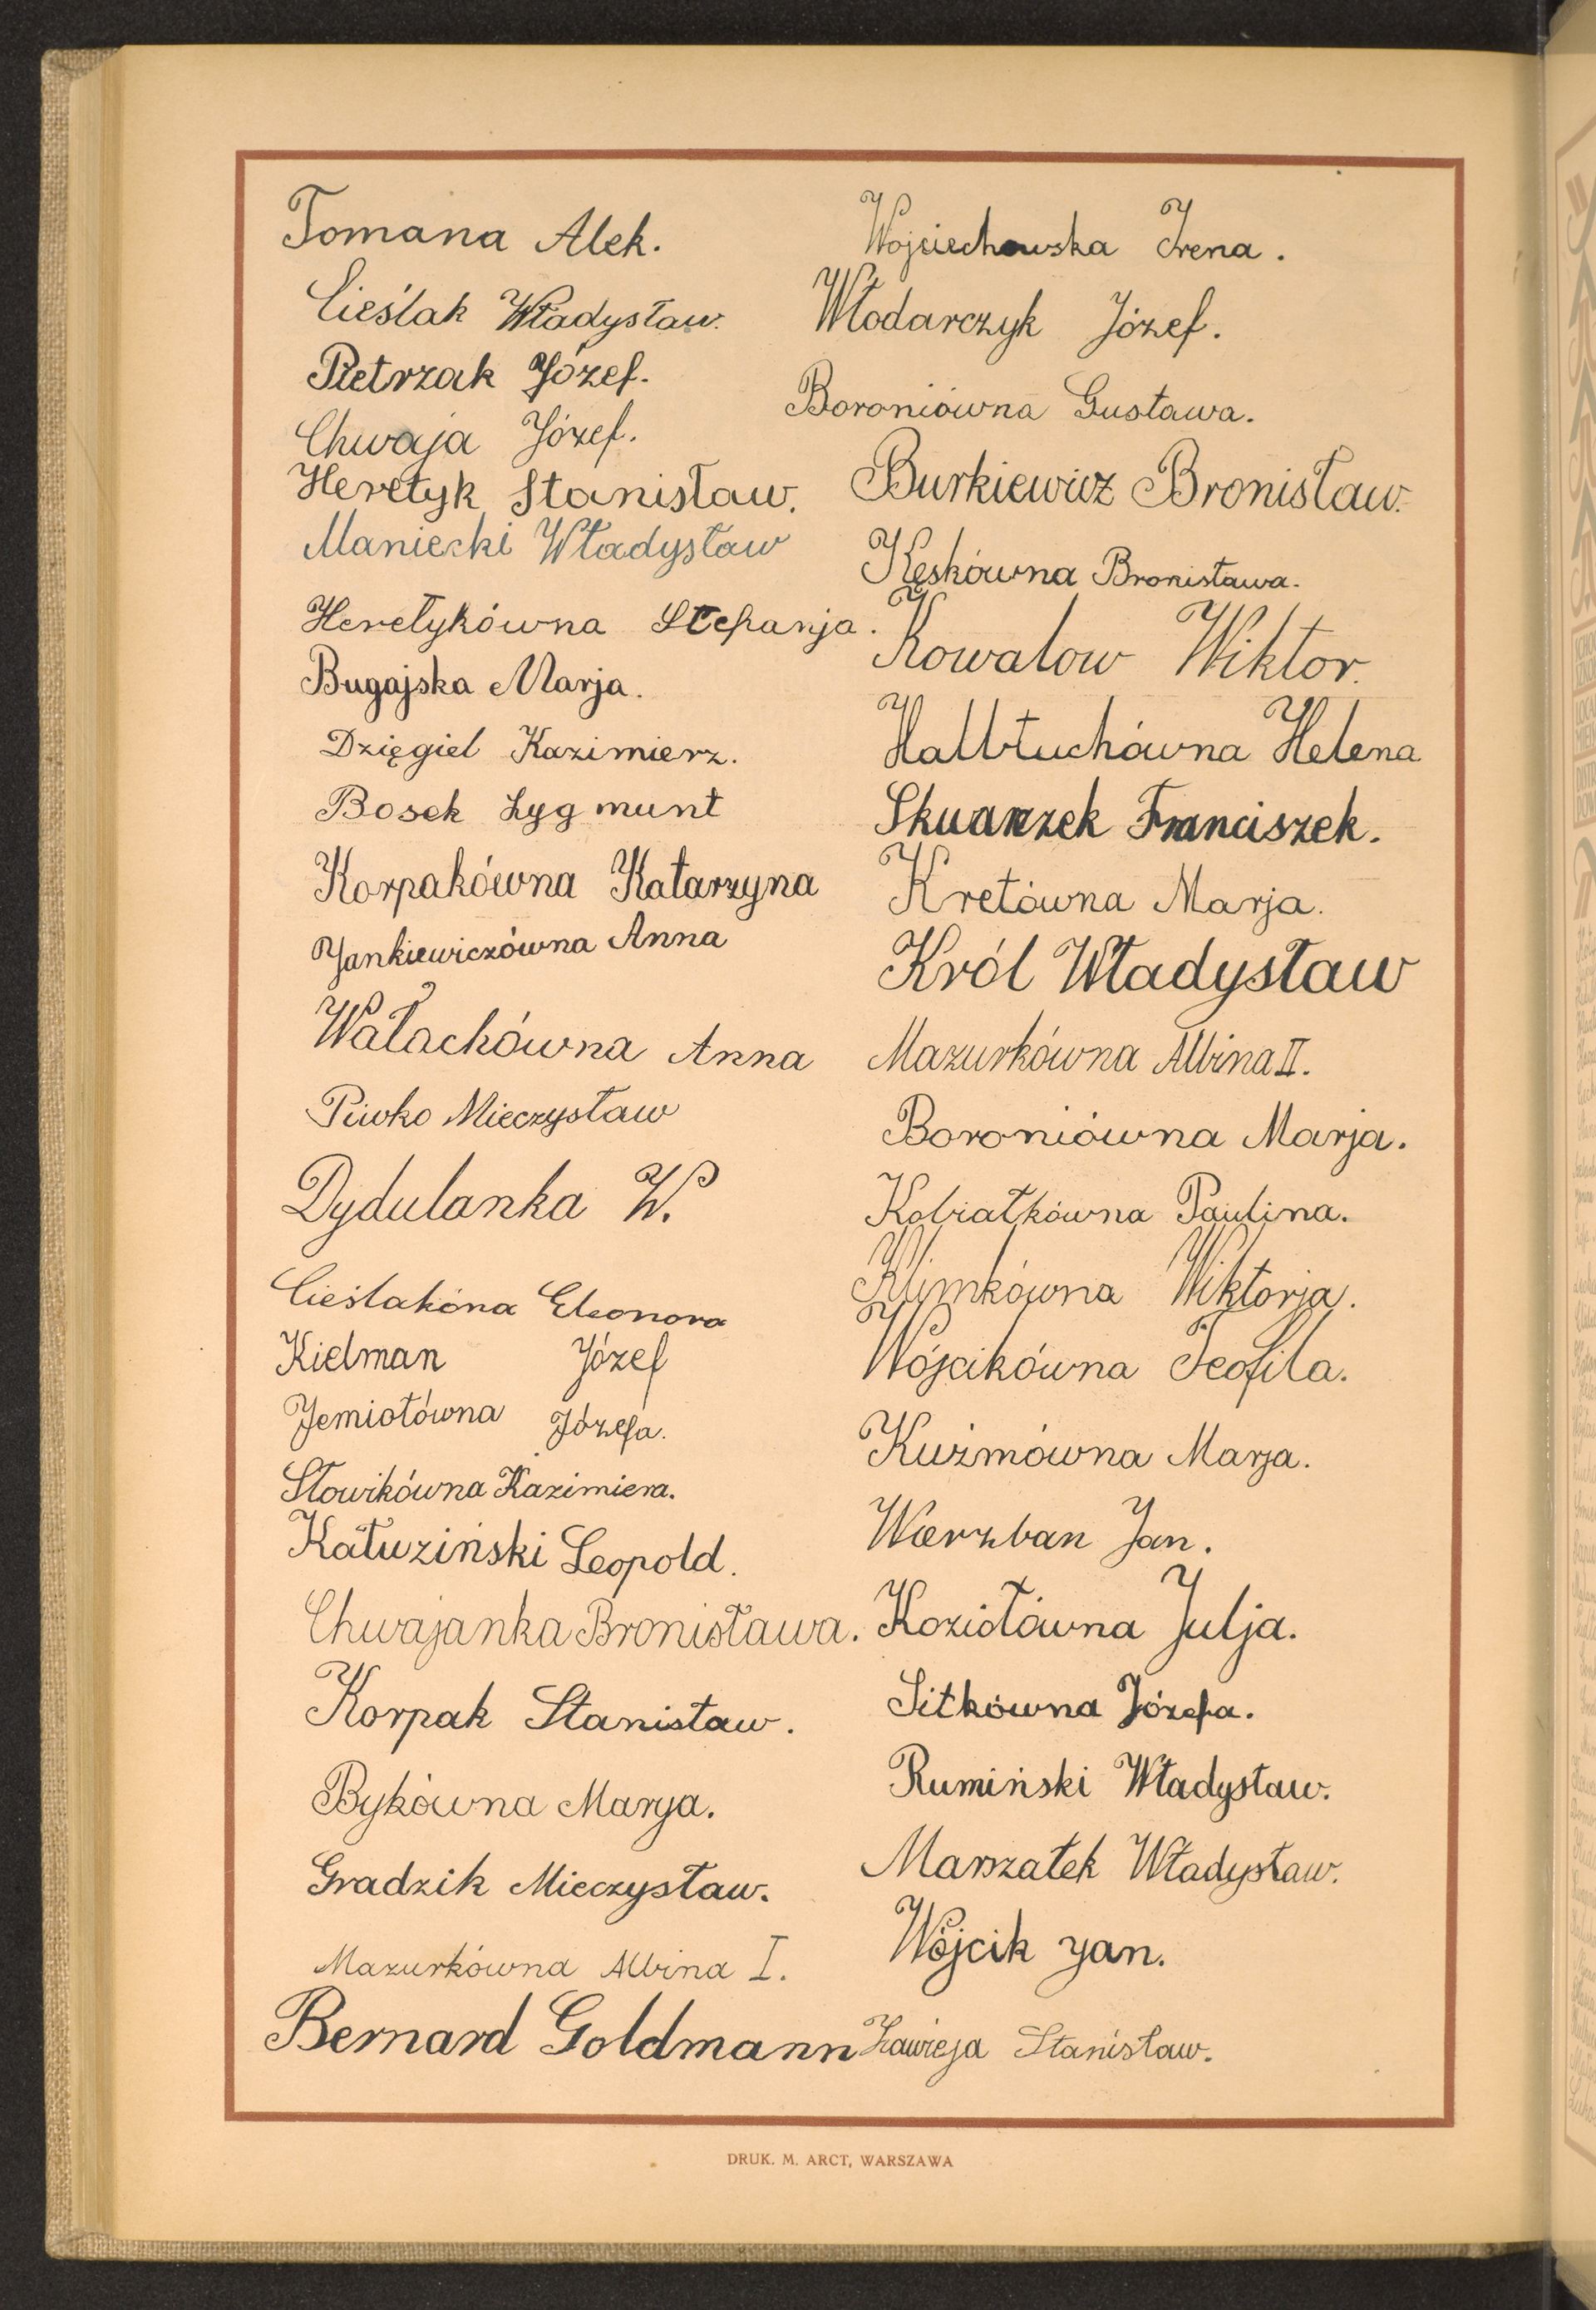 Tomana Alek.
Cieślak Władysław.
Pietrzak Józef.
Chwaja Józef.
Heretyk Stanisław.
Maniecki Władysław
Heretykówna Stefanja.
Bugajska Marja.
Dzięgiel Kazimierz.
Bosek Zygmunt
Korpakówna Katarzyna
Jankiewiczówna Anna
Wałachówna Anna
Piwko Mieczysław
Dydulanka W.
Cieślakóna Eleonora
Kielman Józef
Jemiołówna Józefa.
Słowikówna Kazimiera.
Kałuziński Leopold.
Chwajanka Bronisława.
Korpak Stanisław.
Bykówna Marya.
Gradzik Mieczysław.
Mazurkówna Albina I.
Bernard Goldmann
Wojciechowska Irena.
Włodarczyk Józef.
Boroniówna Gustawa.
Burkiewicz Bronisław.
Kęskówna Bronisława.
Kowalow Wiktor.
Hallłuchówna Helena
Skwarzek Franciszek.
Kretówna Marja.
Król Władysław
Mazurkówna Albina II.
Boroniówna Marja.
Kobiałkówna Paulina.
Klimkówna Wiktorja.
Wójcikówna Teofila.
Kuźmówna Marja.
Wierzban Jan.
Koziołówna Julja.
Sitkówna Józefa.
Rumiński Władysław.
Marszałek Władysław.
Wójcik Jan.
Zawieja Stanisław.
DRUK. M. ARCT, WARSZAWA